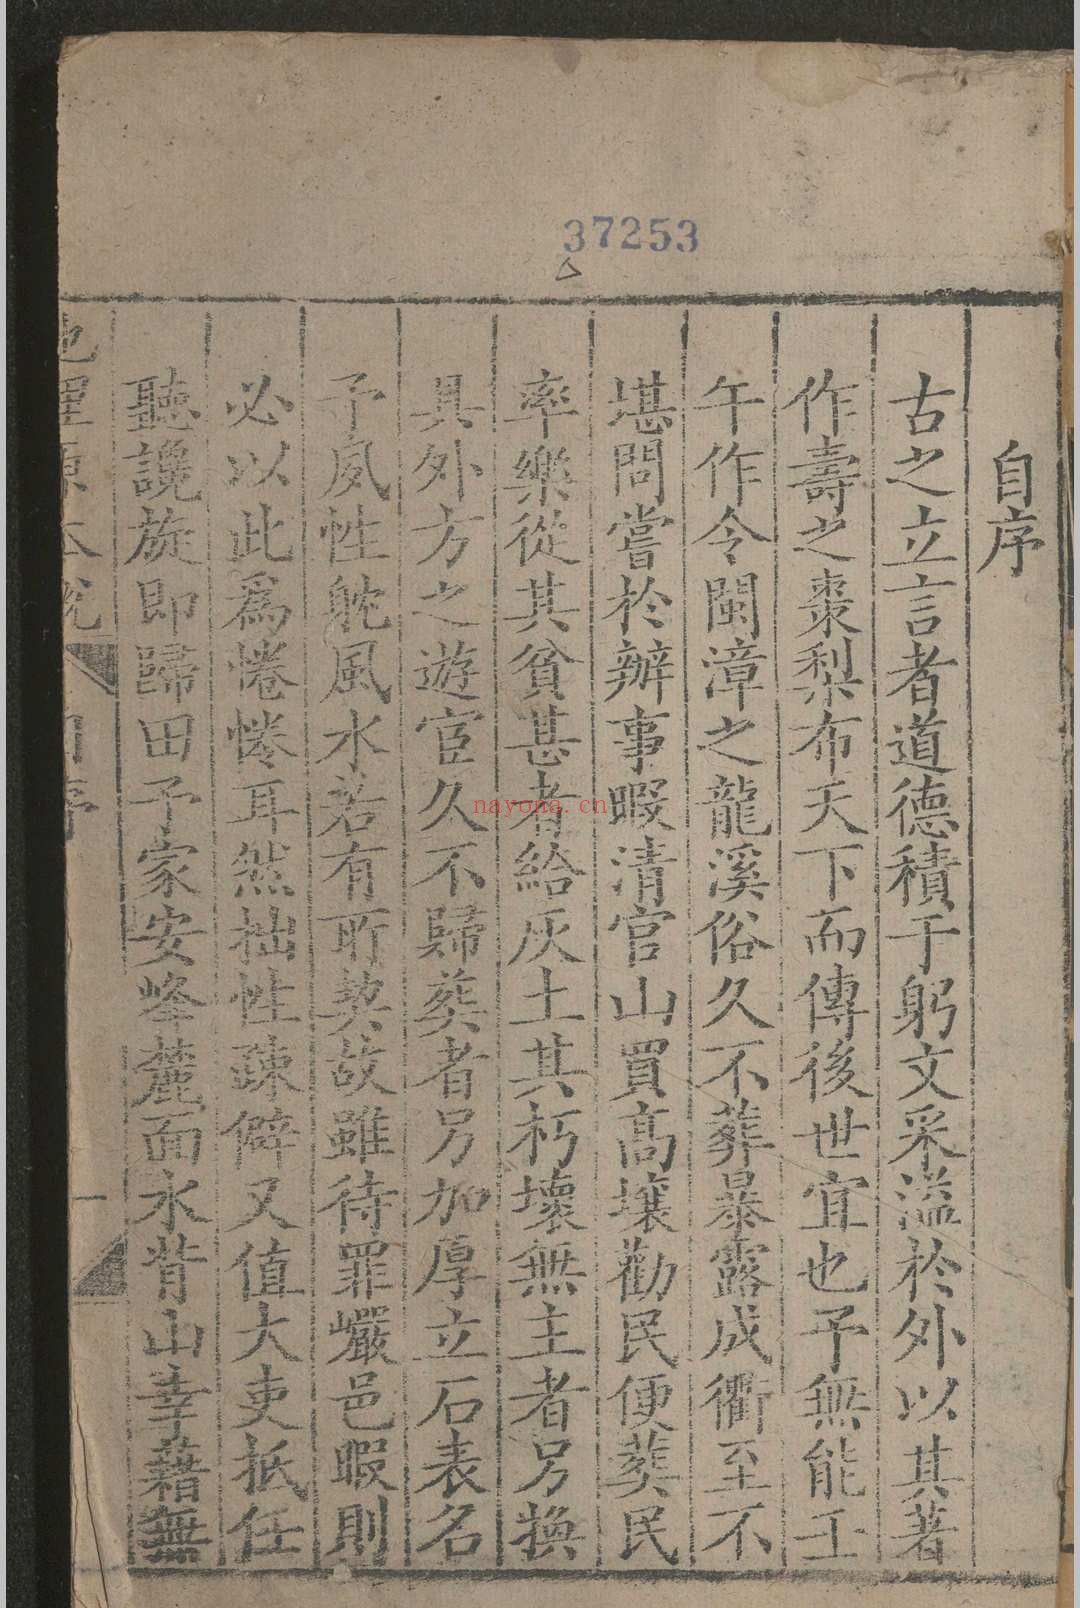 37253
自序
古之立言者道德積于躬文采溢於外以其著
作壽之棗梨布天下而傳後世宜也予無能壬
午作令閩漳之龍溪俗久不葬暴露成衢至不
堪問嘗於辦事暇清官山買高壤勸民便葬民
率樂從其貧甚者給灰土其朽壞無主者另換
具外方之遊宦久不歸葬者另加厚立石表名
予夙性躭風水若有所契故雖待罪巖邑暇則
必以此爲惓惓耳然拙性疎僻又值大吏抵任
聽讒旋即歸田予家安峰麓面水背山幸藉無
地理原本說 自序 一
nayona.cn